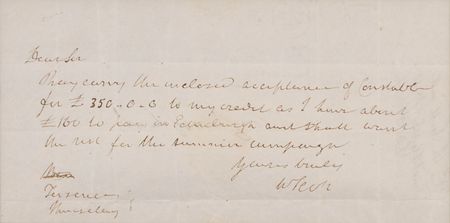 Dear Sir
Pray carry the inclosed acceptance of Constable
for £ 350-0-0 to my credit as I have about
£160 to pay in Edinburgh and shall want
the rest for the summer campaign
Yours truly
W Scott
Thursday